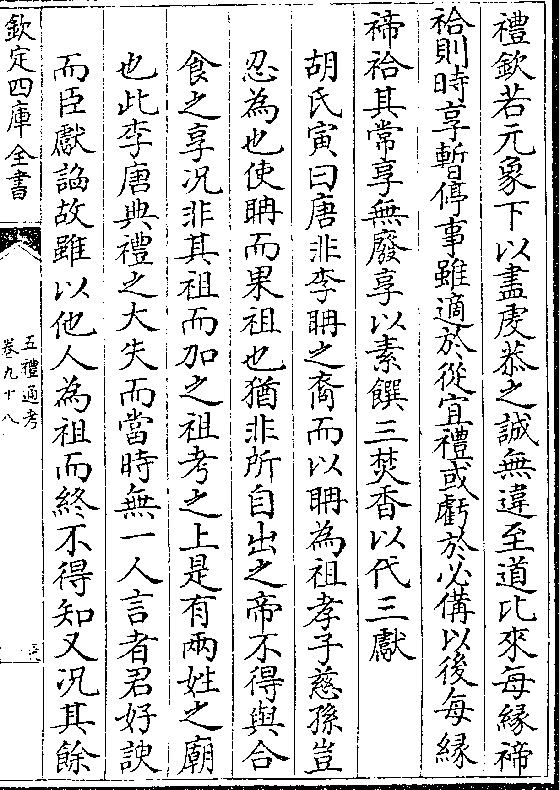 禮欽若元象下以盡虔恭之誠無違至道比來每縁禘
祫則時享暫停事雖適於從宜禮或虧於必備以後每縁
禘祫其常享無廢享以素饌三焚香以代三獻
胡氏寅曰唐非李聃之裔而以聃為祖孝子慈孫豈
忍為也使聃而果祖也猶非所自出之帝不得與合
食之享況非其祖而加之祖考之上是有兩姓之廟
也此李唐典禮之大失而當時無一人言者君好諛
而臣獻謟故雖以他人為祖而終不得知又况其餘
欽定四庫全書
五禮通考
卷九十八